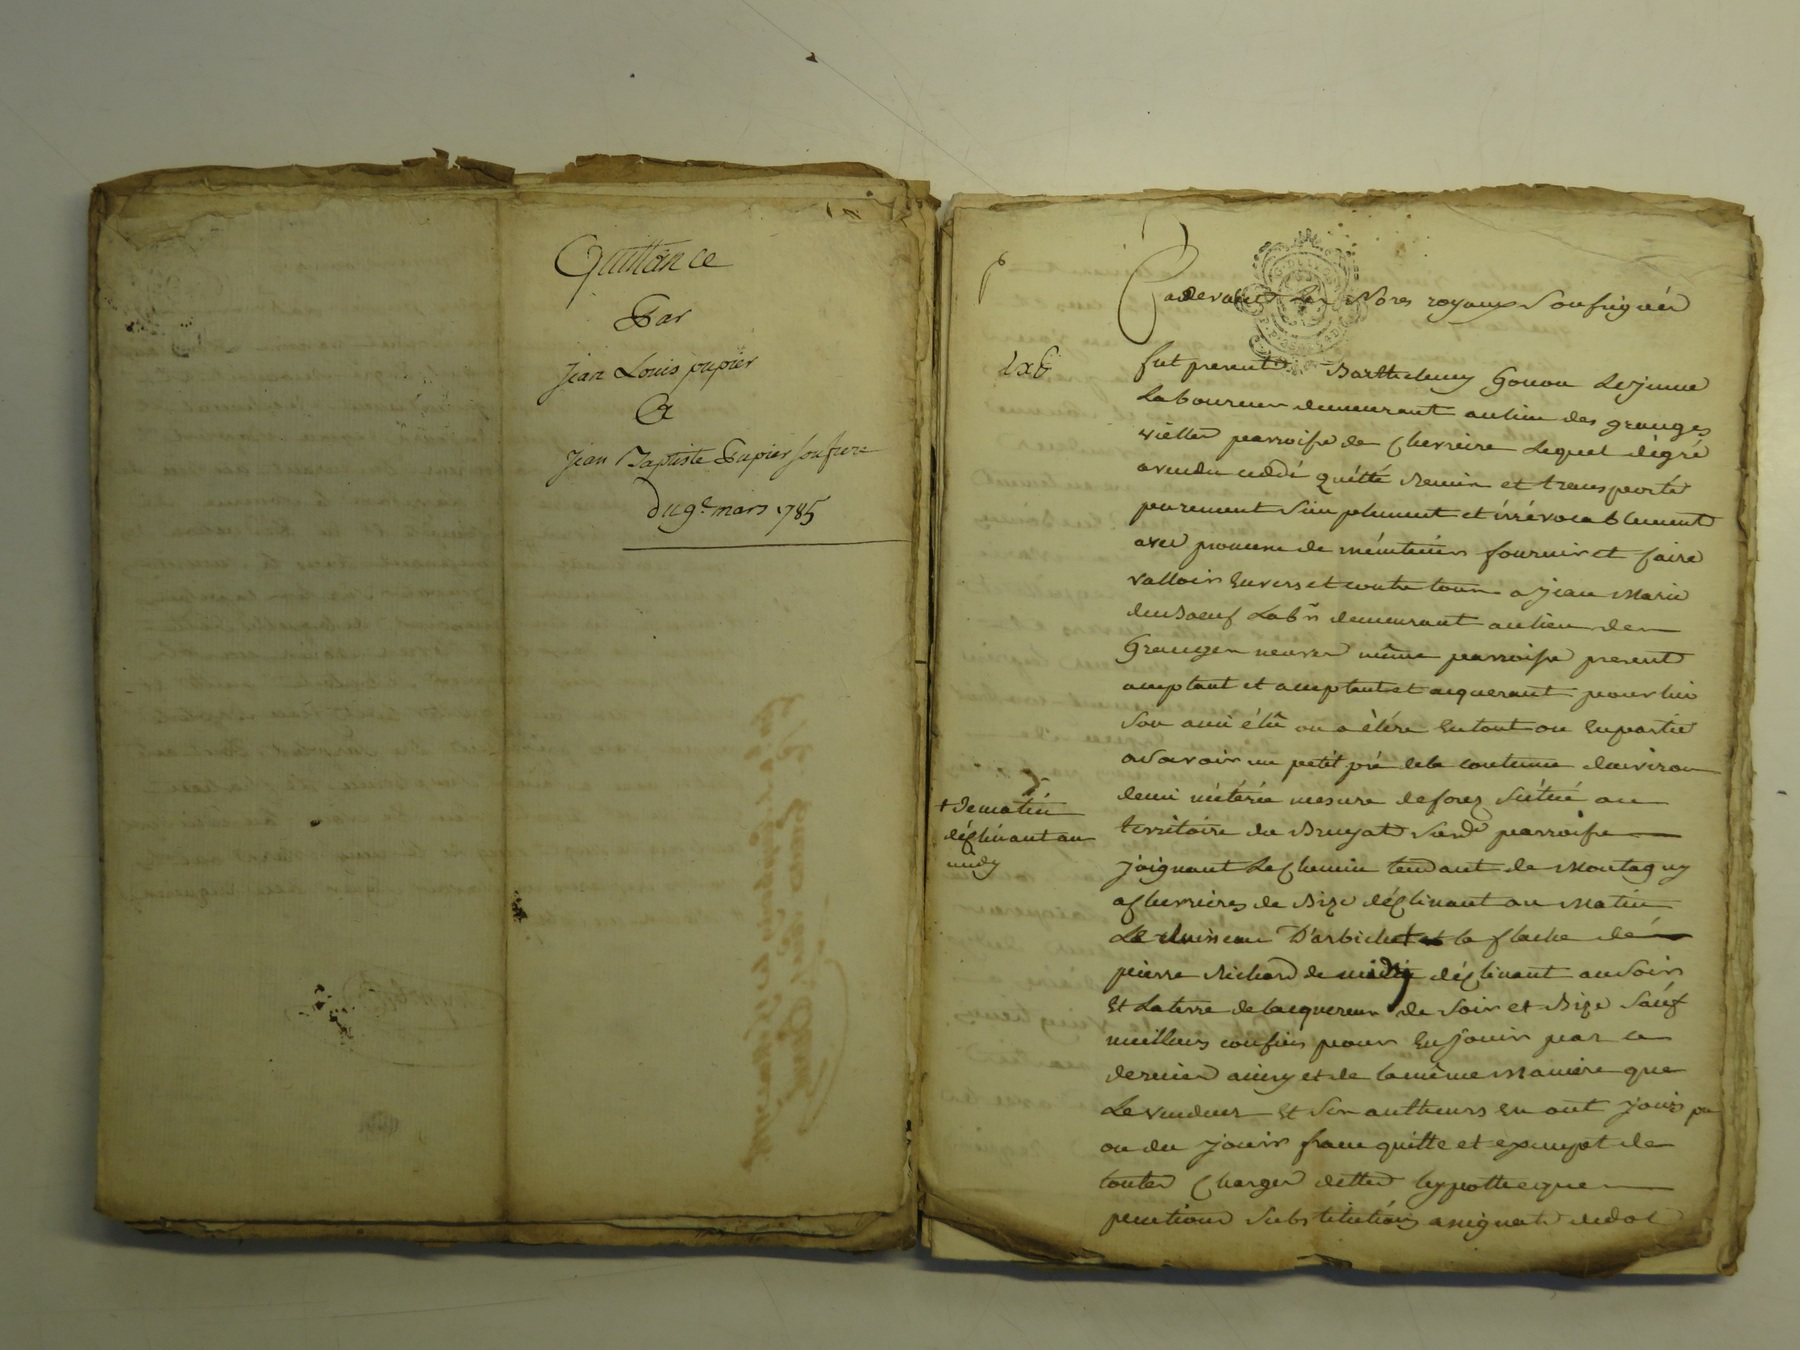 Quittance
Par
Jean Louis papier
A
Jean Baptiste Papier son frere
du 9e mars 1785
Pardevant les Nores royaux soussignés
fut present Barthelemy Gonon Lejeune
Laboureur demeurant au lieu des granges
vielles parroisse de Cherrière Lequel de gré
a vendu cedé quitté remis et transporté
purement simplement et irrévocablement
avec promesse de mintenir fournir et faire
valloir Envers et contre tous a jean Marie
duboeuf Labr demeurant au lieu des
Granges neuves même parroisse present
acceptant et acquerant pour lui
son ami élû ou a élire En tout ou En partie
a Savoir un petit pré de la contenue d'environ
demi méterée mesure deforez Sittué au
territoire du Bruyat Susd parroisse
joignant Le chemin tendant de Montagny
a cherrieres de Bize déclinant au Matin
+ de matin
déclinant au
midy
Le Ruisseau D'arbichet la flache de
pierre Richard de midy déclinant au Soir
Et La terre de lacquereur de Soir et Bize Sauf
meilleurs confins pour En jouir par ce
dernier ainsy et de la même Maniere que
Le vendeur Et Ses autheurs En ont jouis pu
ou du jouir franc quitte et exempt de
toutes Charges dettes hypotheque
pentions Substitutions assignats de dot